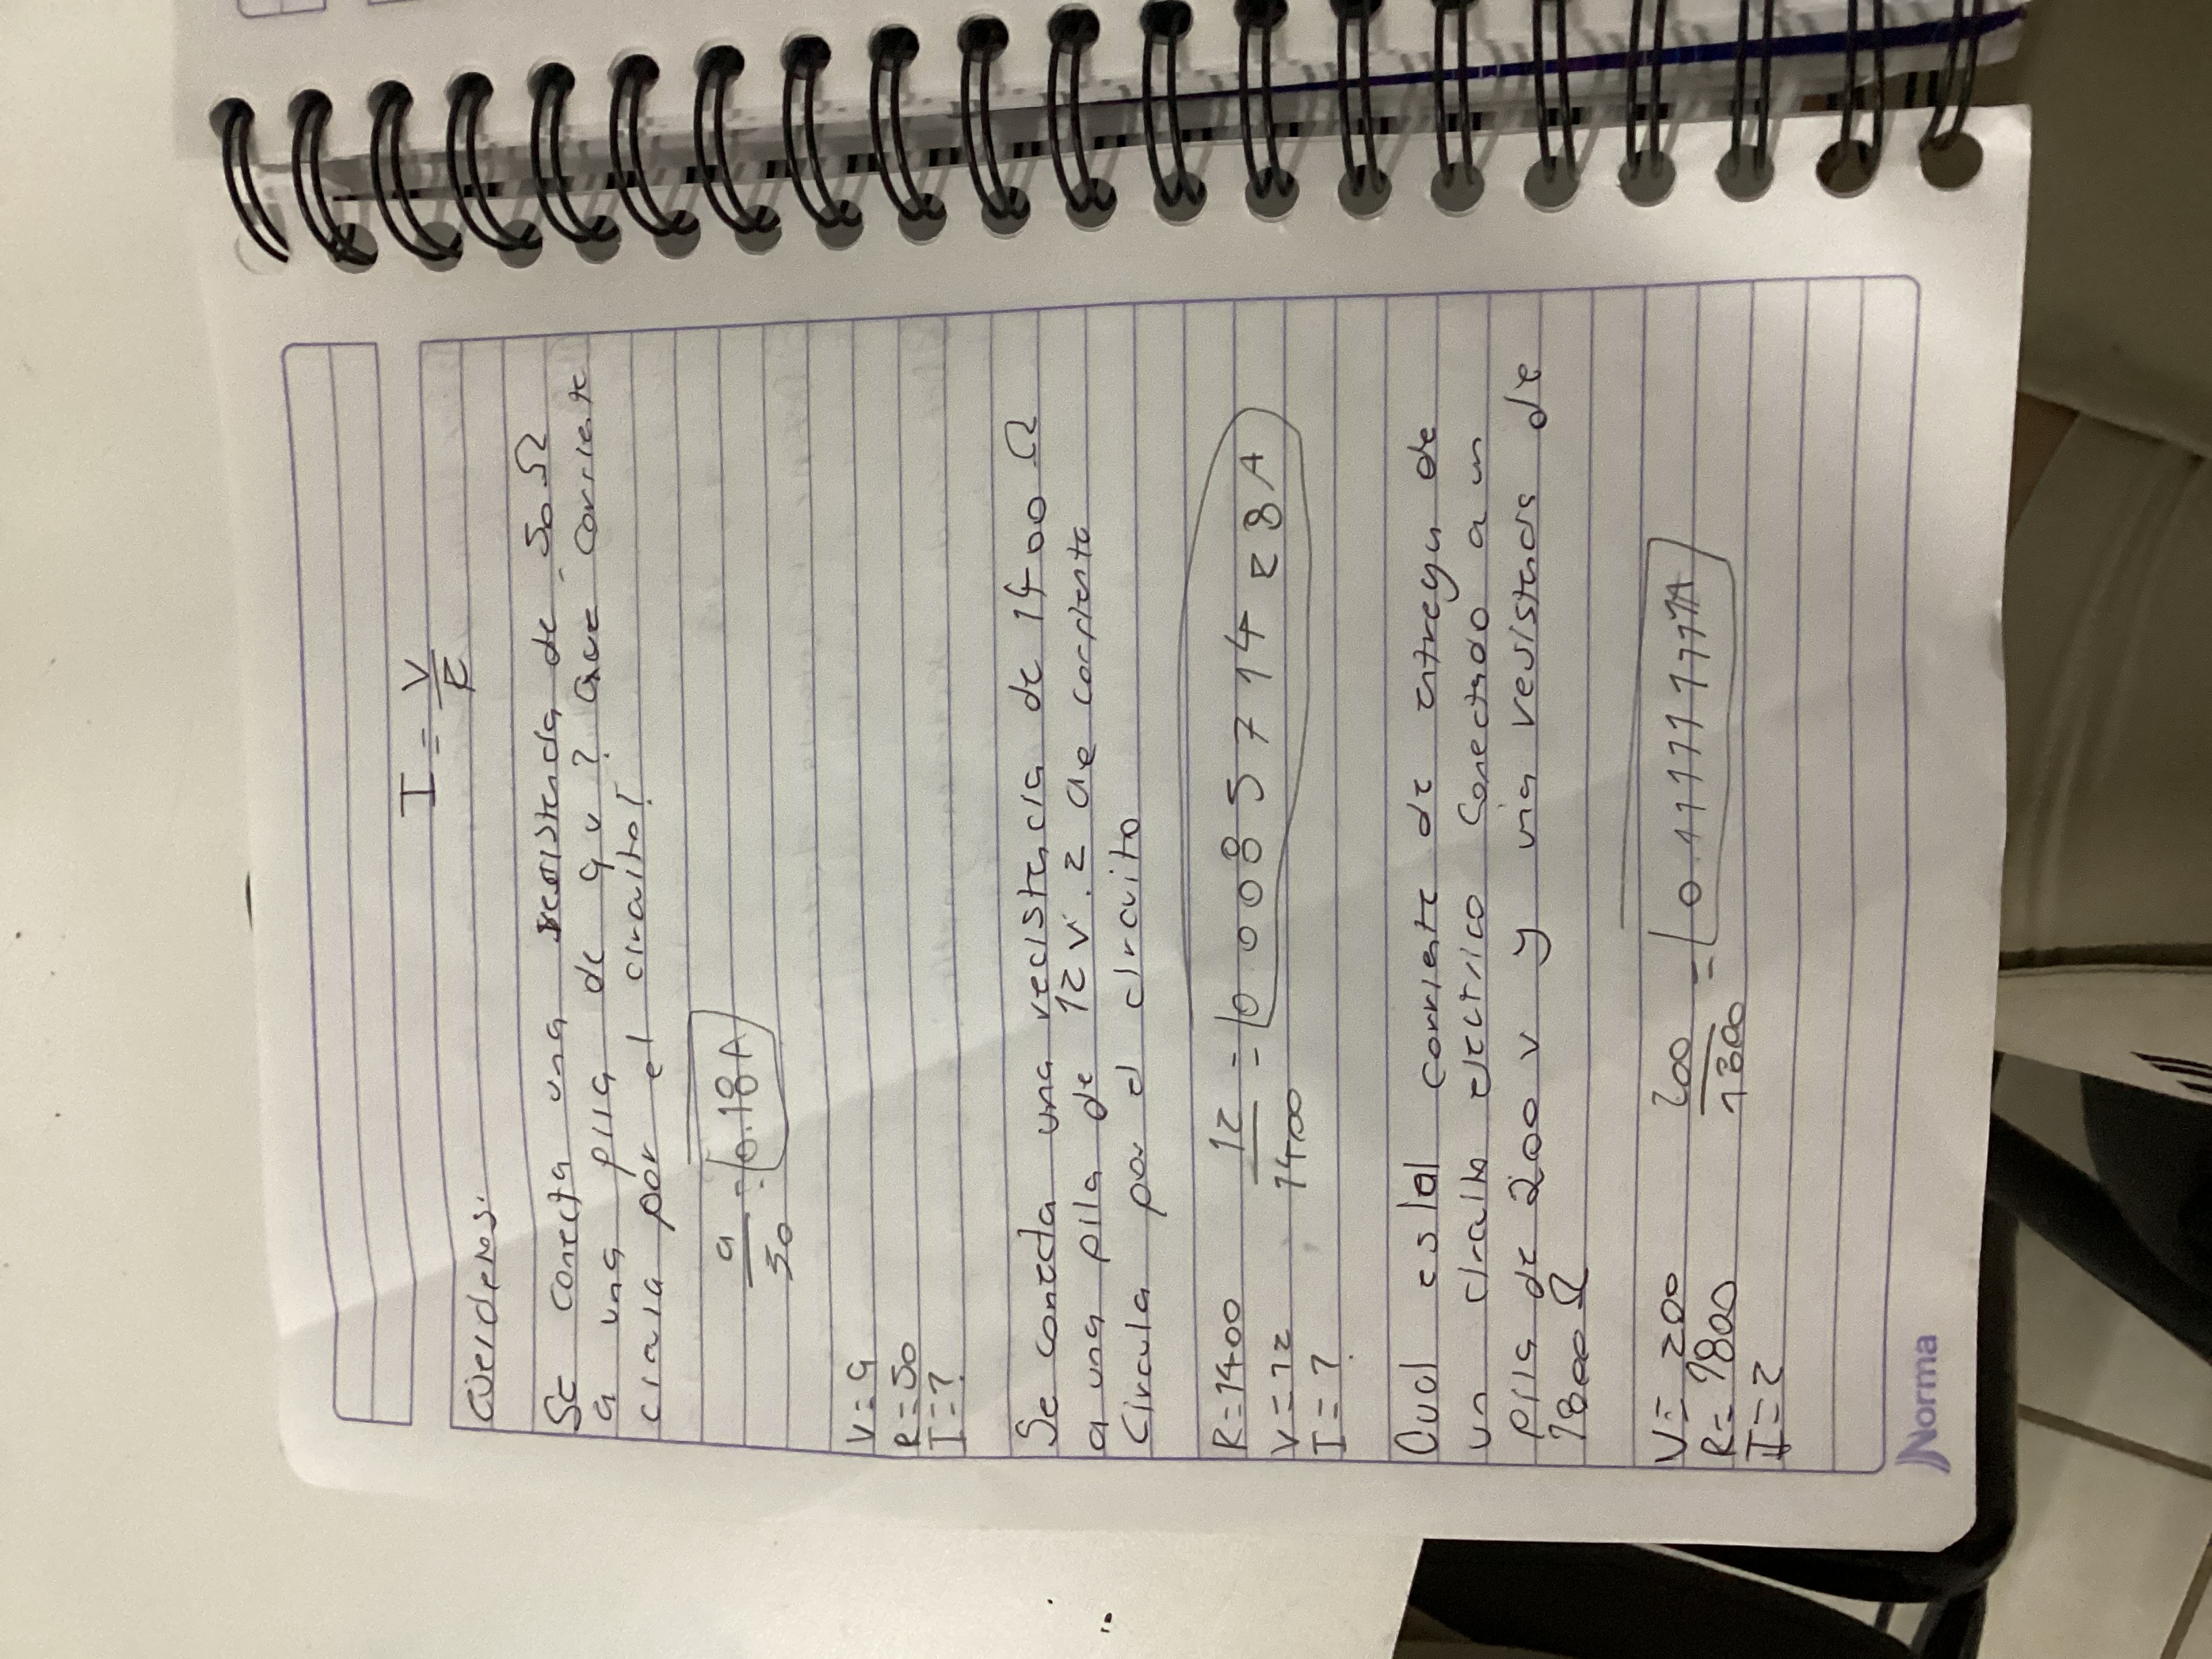 I = V
R
Cüeidenos.
Se conecta una recistencia de - 50 Ω
a una pila de 9 v ? Que corriente
cirula por el ciruito!
9 = 0.18 A
50
V = 9
R = 50
I = ?
Se conecta una recistencia de 1400 Ω
a una pila de 12 v. 2 de corriente
circula por el circuito
R = 1400 12 = 0.008571428 A
V = 12 1400
I = ?
Cual es la corriente de entrega de
un ciruito electrico conectado a un
pila de 200 v y una resistencis de
1800 Ω
V = 200 200 = 0.11111111 A
R = 1800 1800
I = ?
Norma